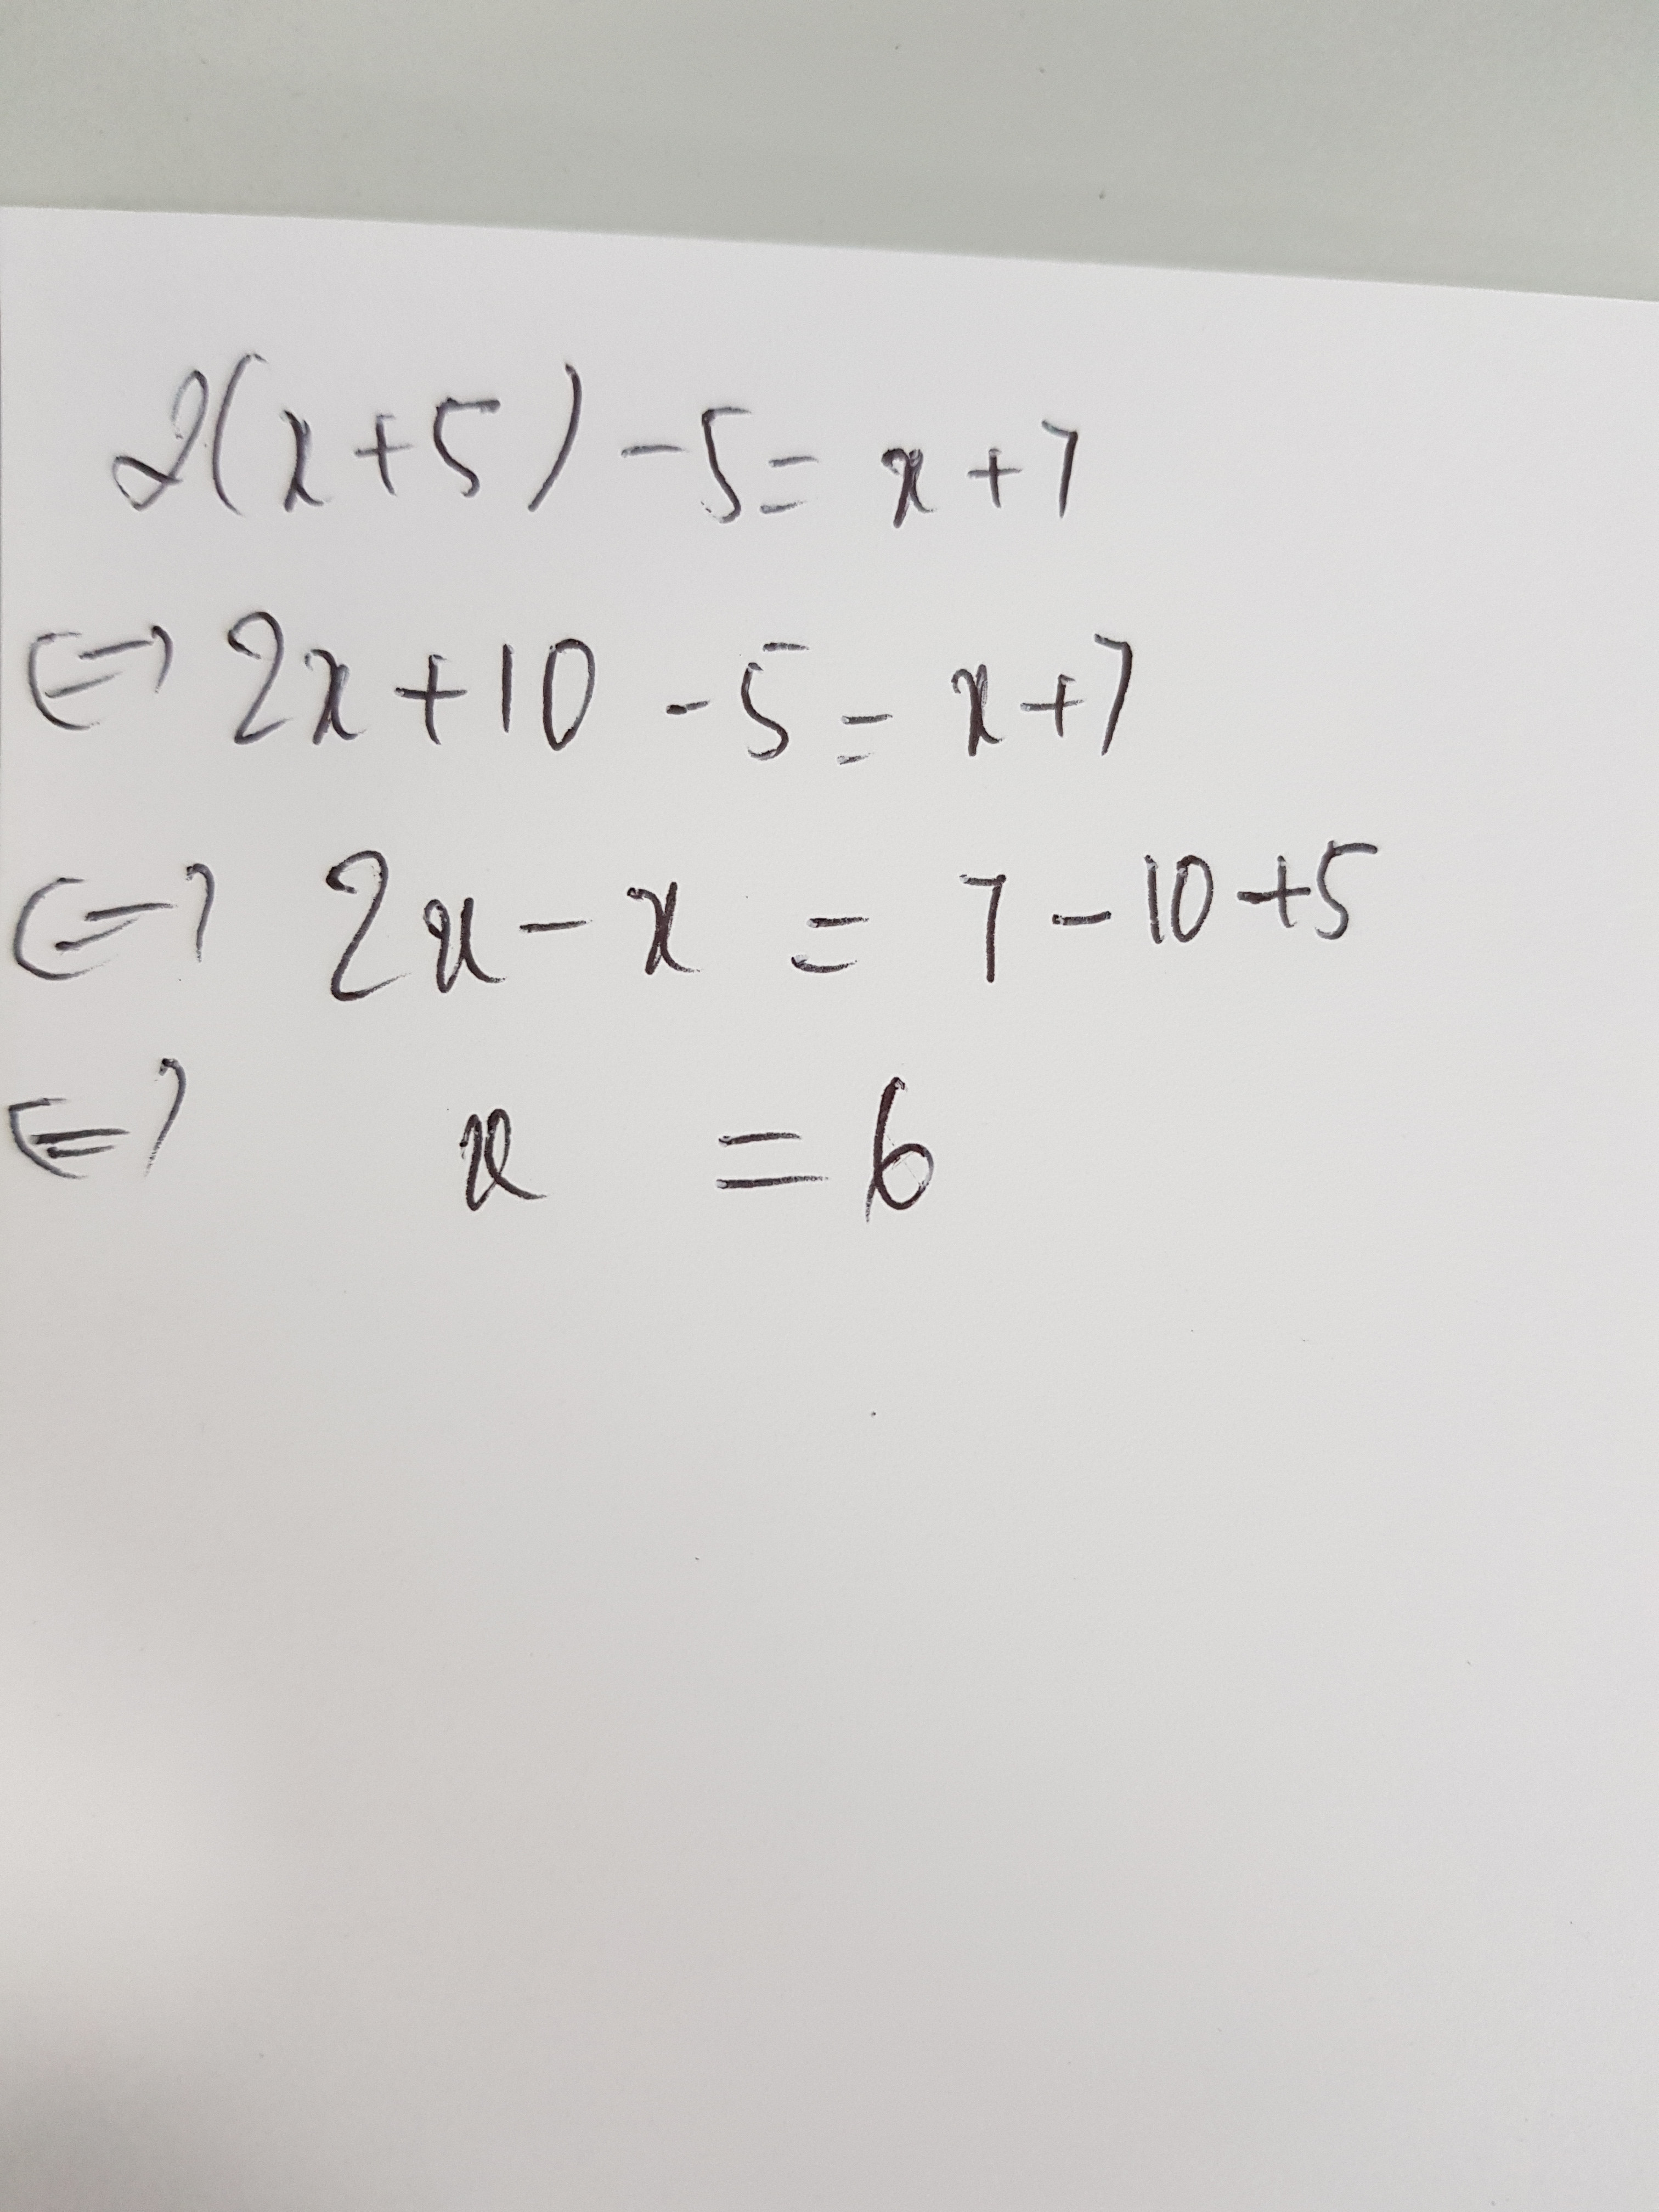 2(x+5)-5=x+7
⇔ 2x+10-5=x+7
⇔ 2x-x=7-10+5
⇔ x=6